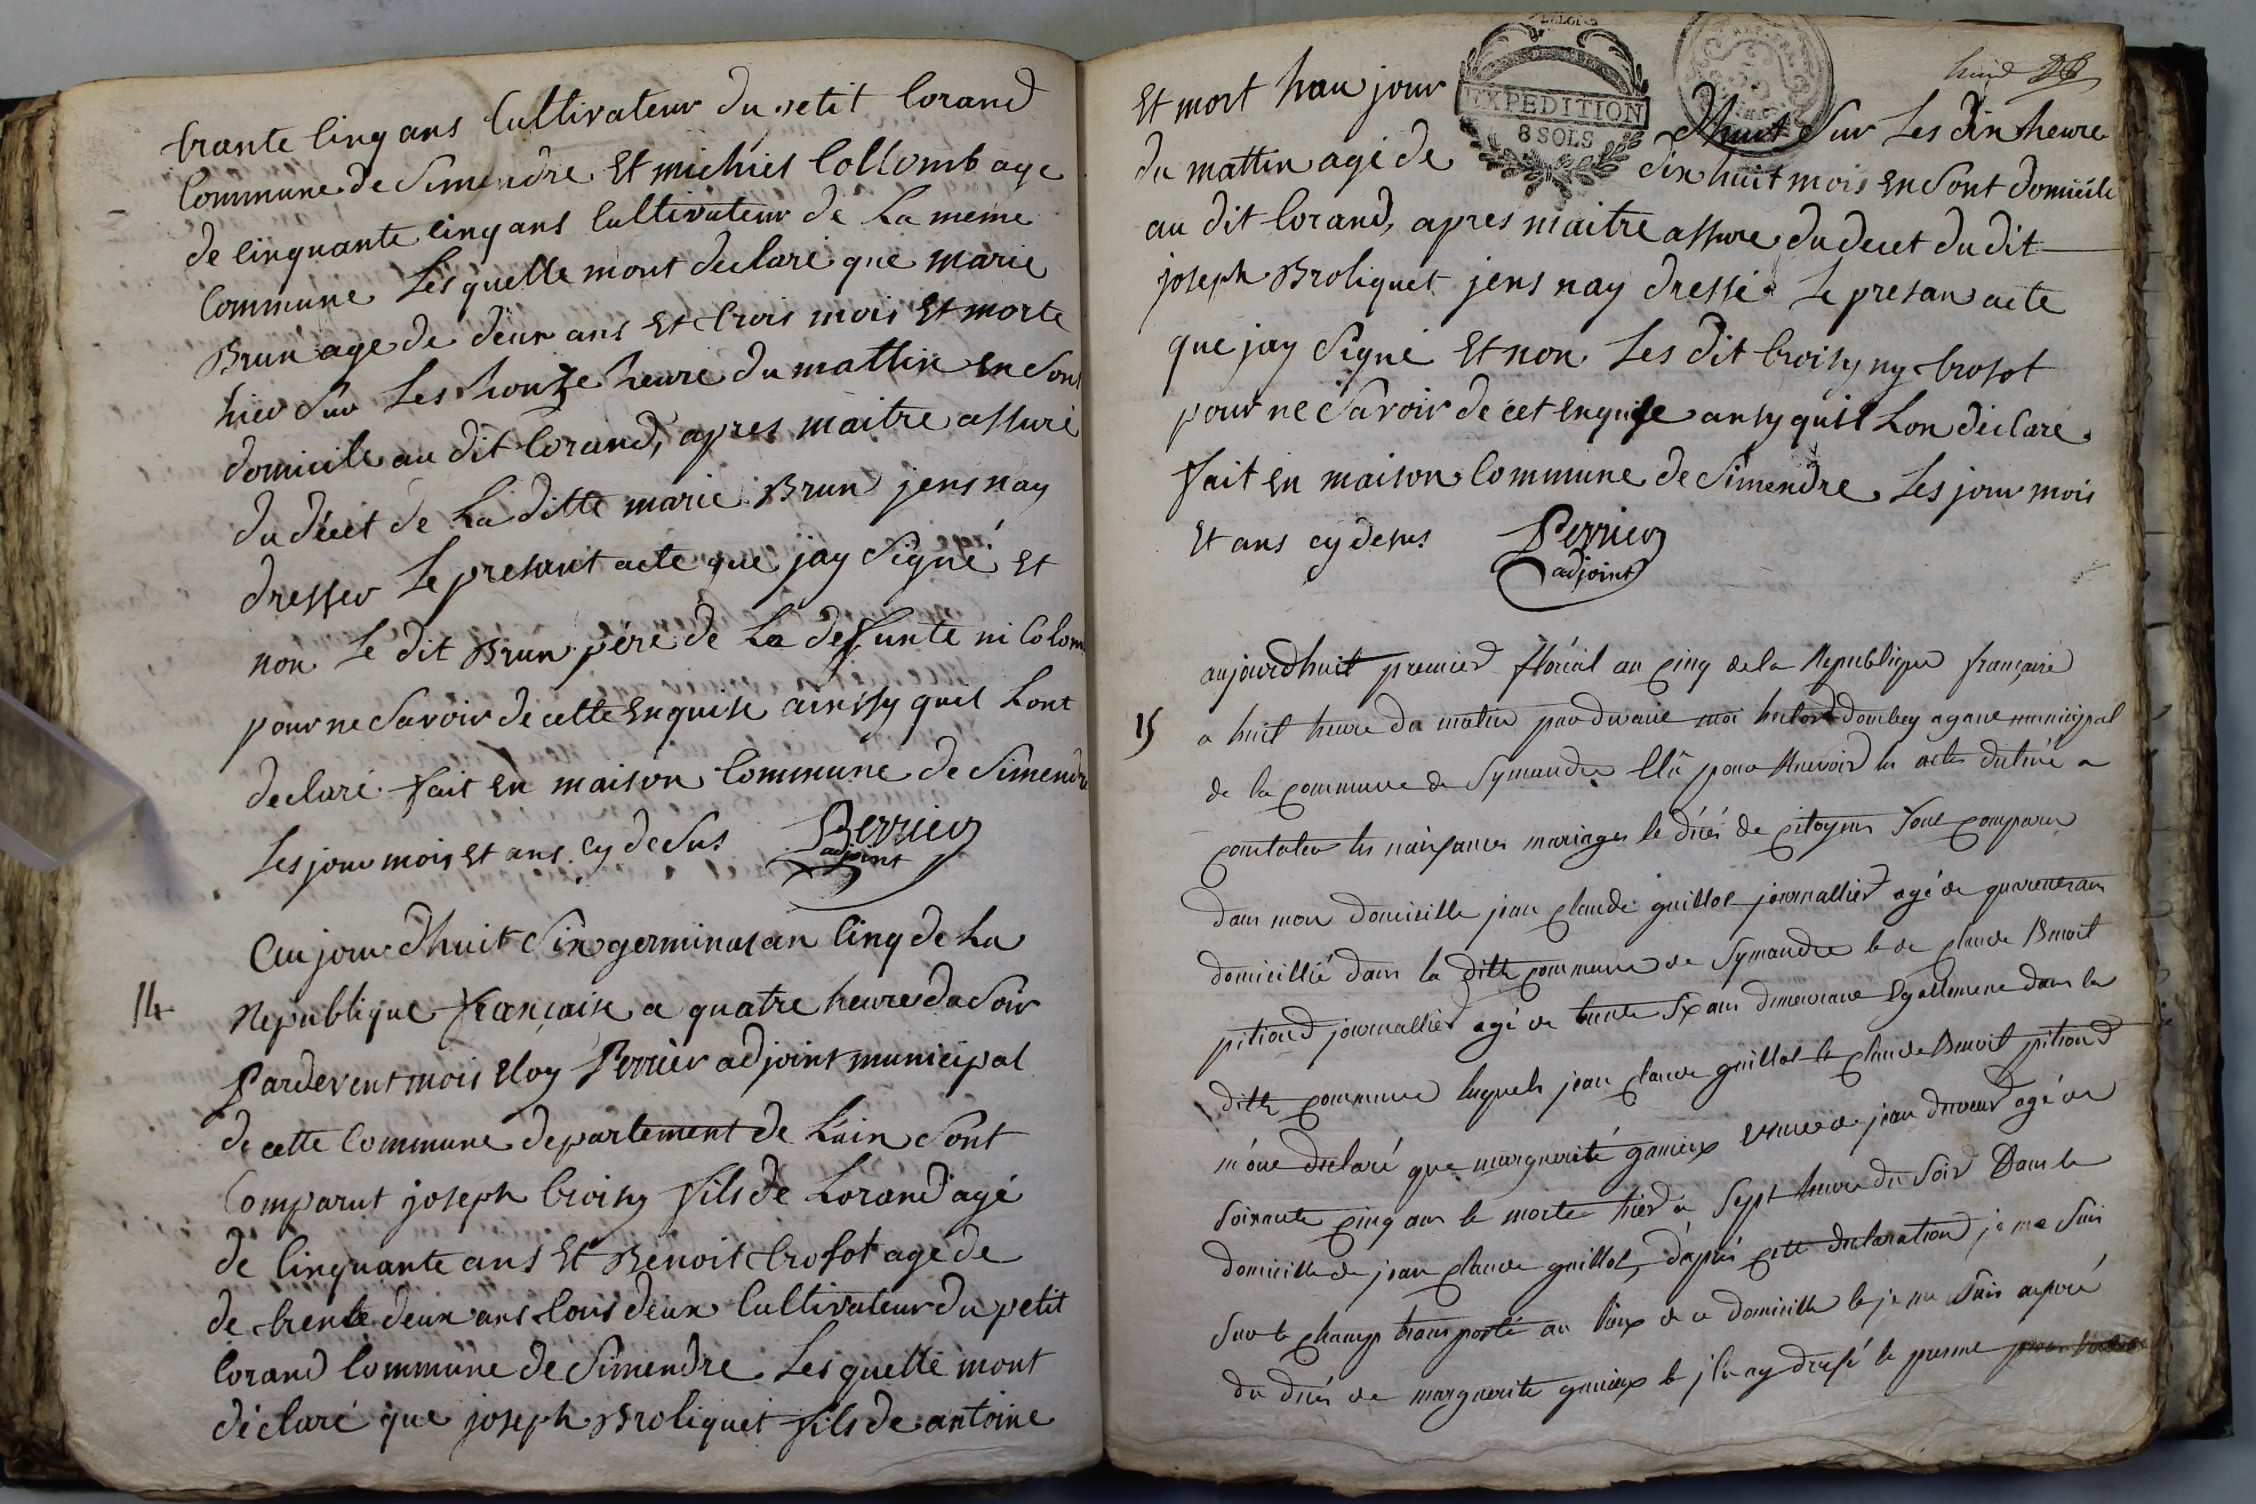 trante Cinq ans Cultivateur du petit Corand
Commune de Simendre Et michiel Collomb age
de Cinquante cinq ans Cultivateur de La meme
Commune Lesquelle mont declaré que marie
Brun age de deux ans Et trois mois Et morte
hier Sur Les honze heure du mattin en Son
domicile au dit Corand, apres maitre assuré
du décet de La ditte marie Brun jens nay
dresser Le presant acte que jay Signé Et
non Le dit Brun pere de La defunte ni Colom
pour ne Savoir de cette Enquise ainsy quil Lont
declaré fait En maison Commune de Simendre
Les jour mois Et ans cy deSus Perrier
adjoint
14
Aujourdhuit Six germinal an Cinq de La
Republique française a quatre heure du Soir
Pardevent mois Eloy Perrier adjoint municipal
de cette Commune departement de Lain Sont
Comparut joseph Croisy fils de Lorand agé
de Cinquante ans Et Benoit trosot age de
de trente deux ans tous deux Cultivateur du petit
Corand Commune de Simendre Lesquelle mont
déclaré que joseph Broliquet fils de antoine
Et mort hau jour dhuit Sur Les dix heure
EXPEDITION
8 SOLS
du mattin agé de dix huit mois en Sont domicile
au dit Corand, apres maitre assure du decet du dit
joseph Broliquet jens nay dressé Le presan acte
que jay Signé Et non Les dit Croisy ny trosot
pour ne Savoir de cet enquise ansy quil Lon declaré
fait En maison Commune de Simendre Les jour mois
Et ans cy desus Perrier
adjoint
15
aujourdhuit premier floréal an cinq de la Republique française
a huit heure du matin pardevant moi dombey agant municipal
de la commune de Symandre Elû pour Recevoir les actes destiné a
constater les naissances mariages le décés de citoyens Sont comparu
dans mon domicille jean claude guillot journallier agé de quarente ans
domicillié dans la ditte commune de Symandre et de claude Benoit
pitiond journallier agé de trente Six ans demeurant Egallement dans la
ditte commune lesquels jean claude guillot et claude Benoit pitiond
m'ont déclaré que marguerite Veuve de jean agé de
Soixante cinq ans et morte hier a Sept heure du Soir Dans le
domicille de jean claude guillot, d'après cette declaration je me Suis
Sur le champ transporté au lieux de ce domicille et je me Suis assuré
du décés de marguerite et j'en ay dressé le present